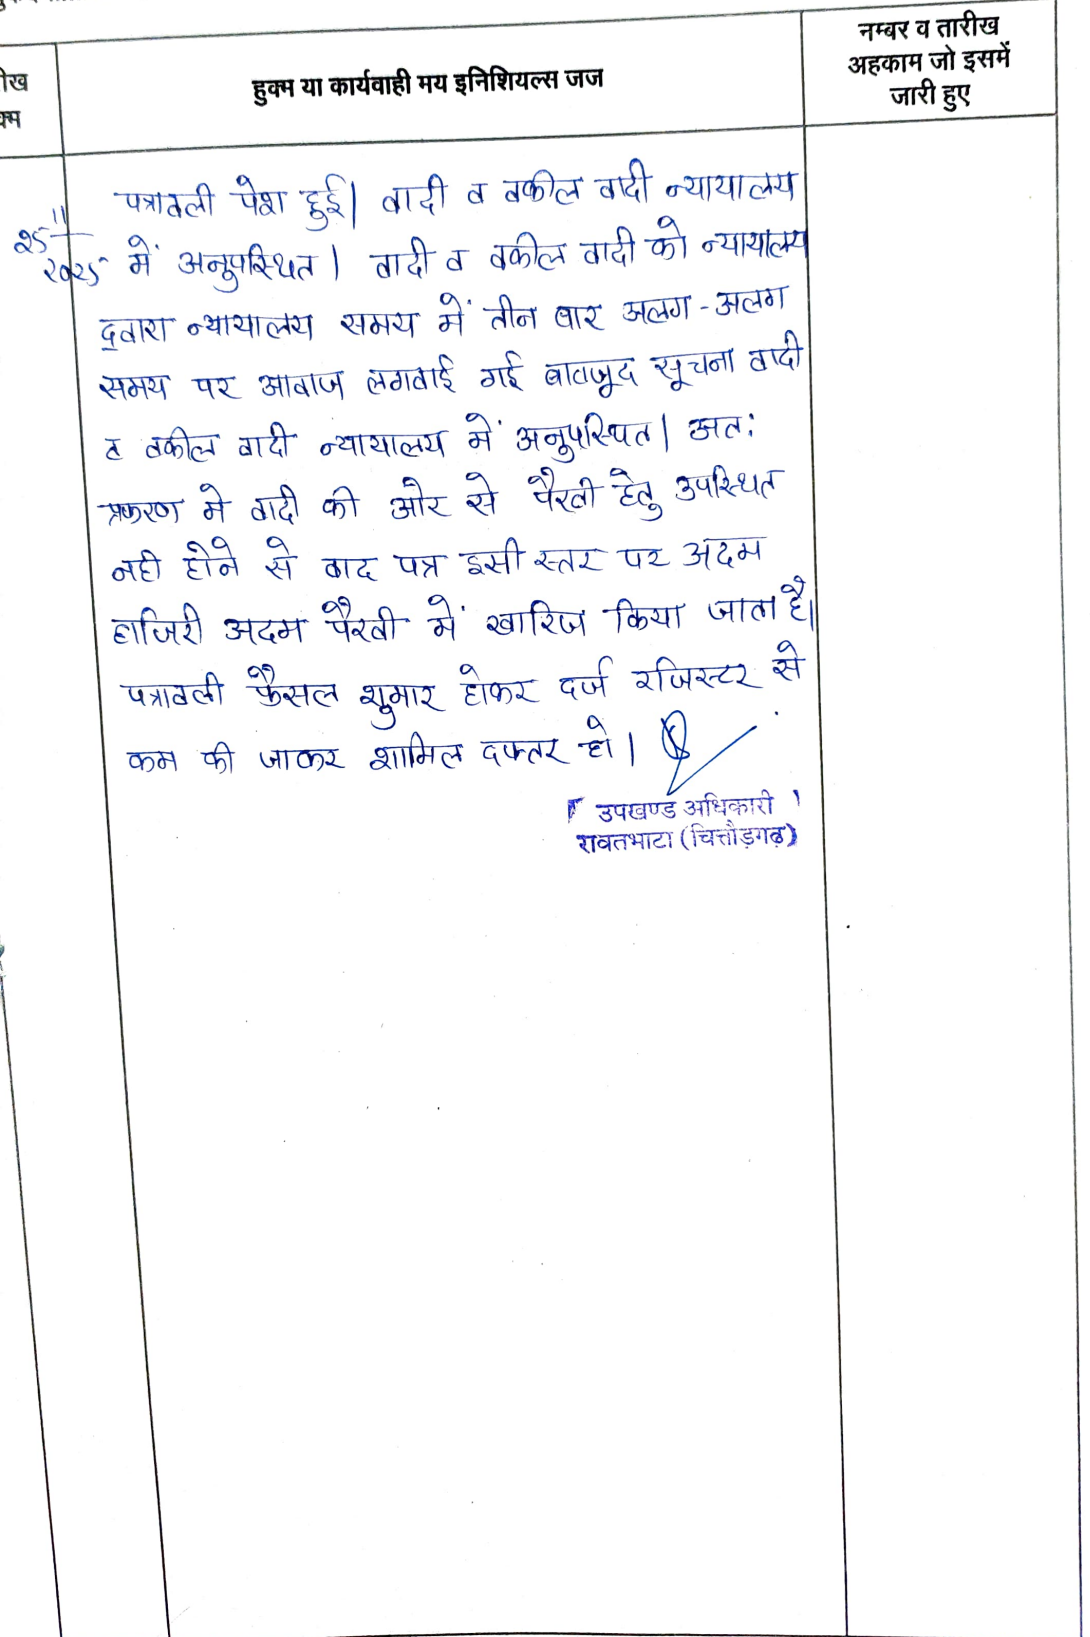 नम्बर व तारीख
अहकाम जो इसमें
जारी हुए
हुक्म या कार्यवाही मय इनिशियल्स जज
25/11/2025
पत्रावली पेश हुई। वादी व वकील वादी न्यायालय
में अनुपस्थित। वादी व वकील वादी को न्यायालय
द्वारा न्यायालय समय में तीन बार अलग-अलग
समय पर आवाज लगवाई गई बावजूद सूचना वादी
व वकील वादी न्यायालय में अनुपस्थित। अतः
प्रकरण मे वादी की ओर से पैरवी हेतु उपस्थित
नही होने से वाद पत्र इसी स्तर पर अदम
हाजिरी अदम पैरवी में खारिज किया जाता है।
पत्रावली फैसल शुमार होकर दर्ज रजिस्टर से
कम की जाकर शामिल दफ्तर हो।
उपखण्ड अधिकारी
रावतभाटा (चित्तौड़गढ़)